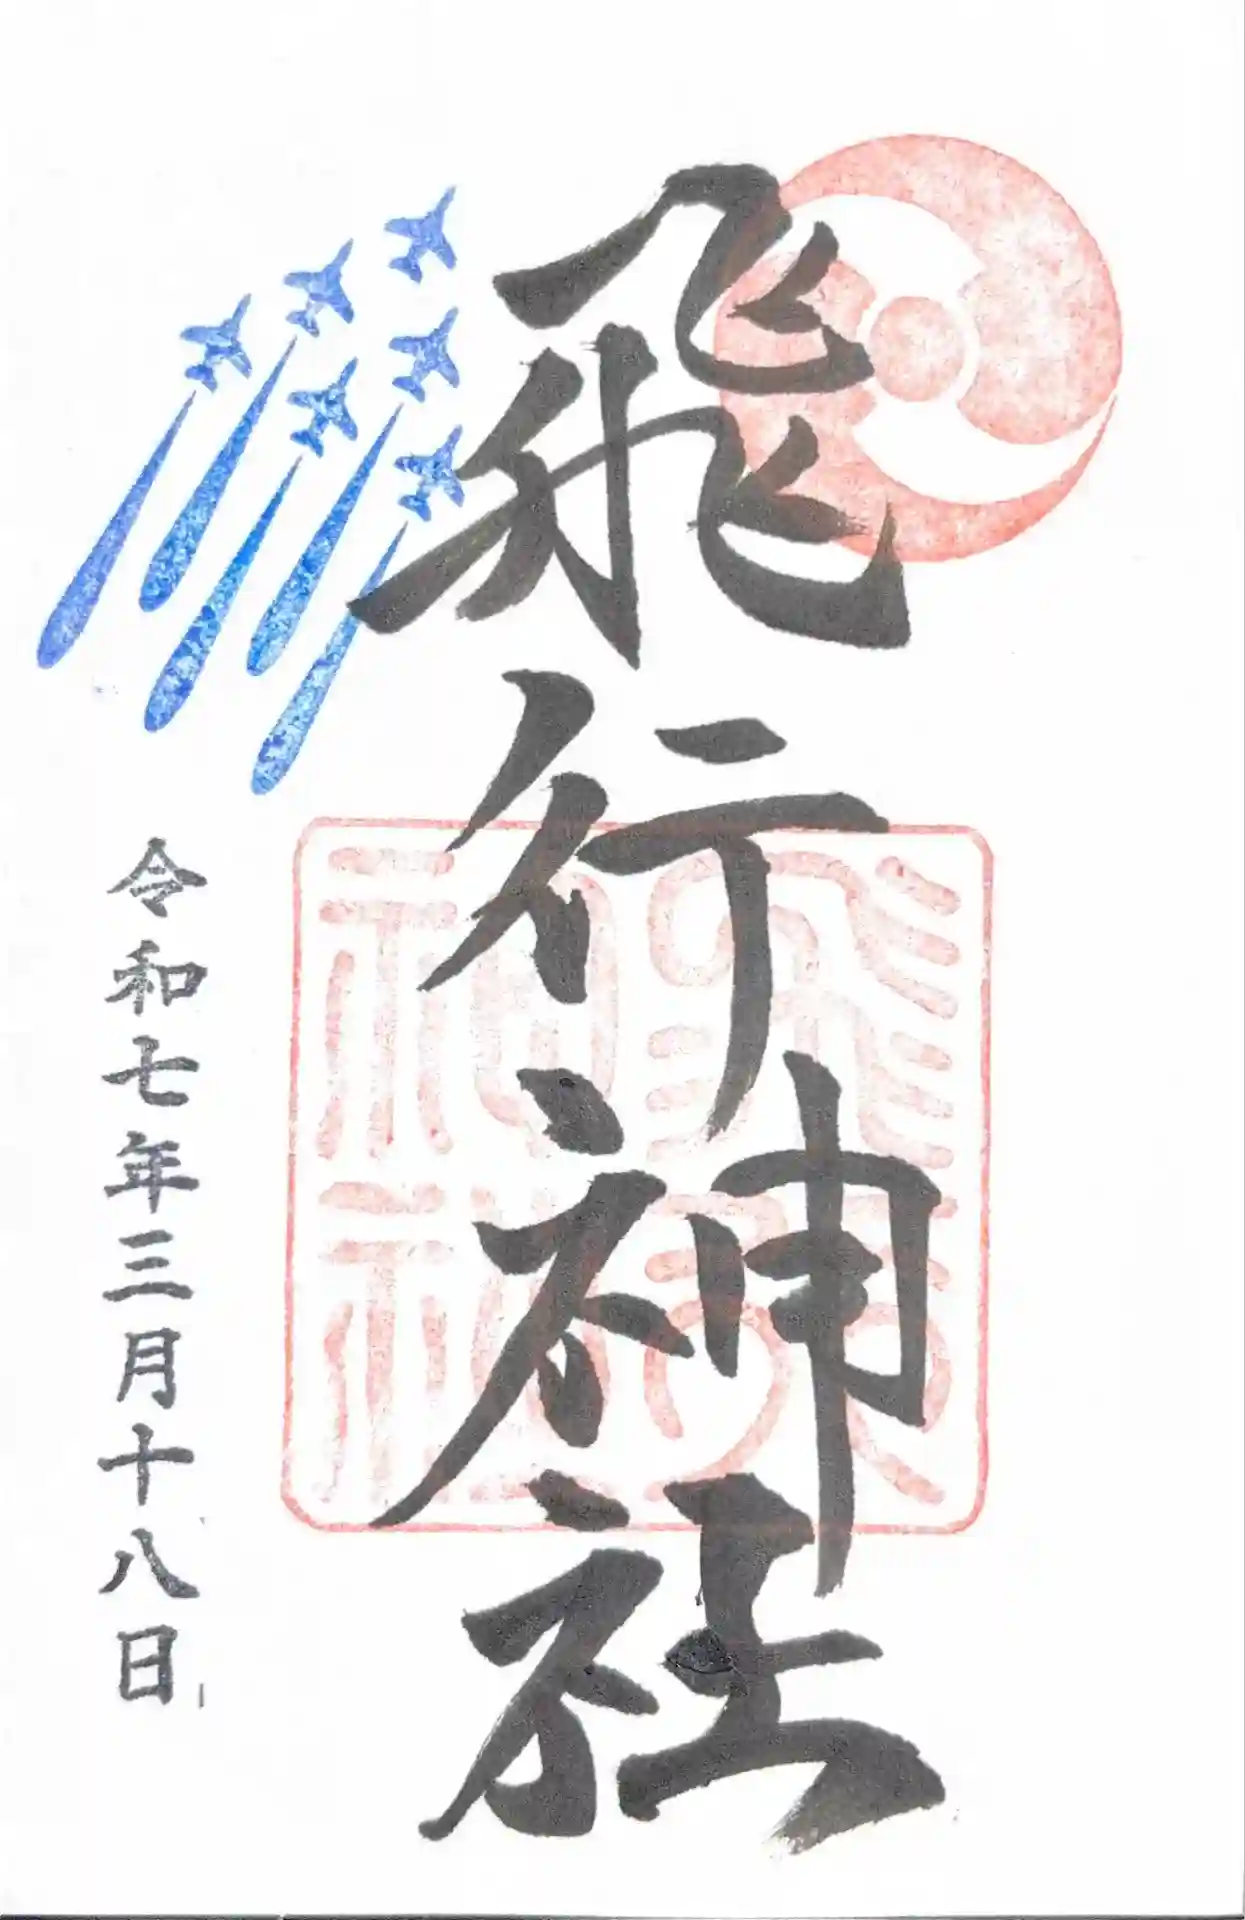 飛行神社
飛行
神社
令和七年三月十八日